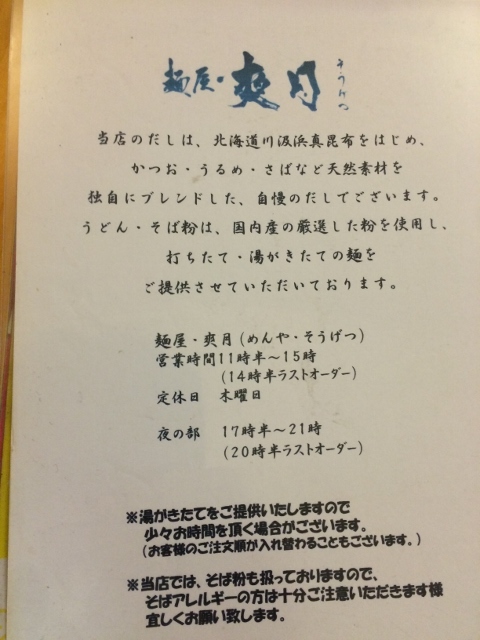 麺屋・爽月
そうげつ
当店のだしは、北海道川汲浜真昆布をはじめ、
かつお・うるめ・さばなど天然素材を
独自にブレンドした、自慢のだしでございます。
うどん・そば粉は、国内産の厳選した粉を使用し、
打ちたて・湯がきたての麺を
ご提供させていただいております。
麺屋・爽月(めんや・そうげつ)
営業時間11時半～15時
(14時半ラストオーダー)
定休日 木曜日
夜の部 17時半～21時
(20時半ラストオーダー)
※湯がきたてをご提供いたしますので
少々お時間を頂く場合がございます。
(お客様のご注文順が入れ替わることもございます。)
※当店では、そば粉も扱っておりますので、
そばアレルギーの方は十分ご注意いただきます様
宜しくお願い致します。